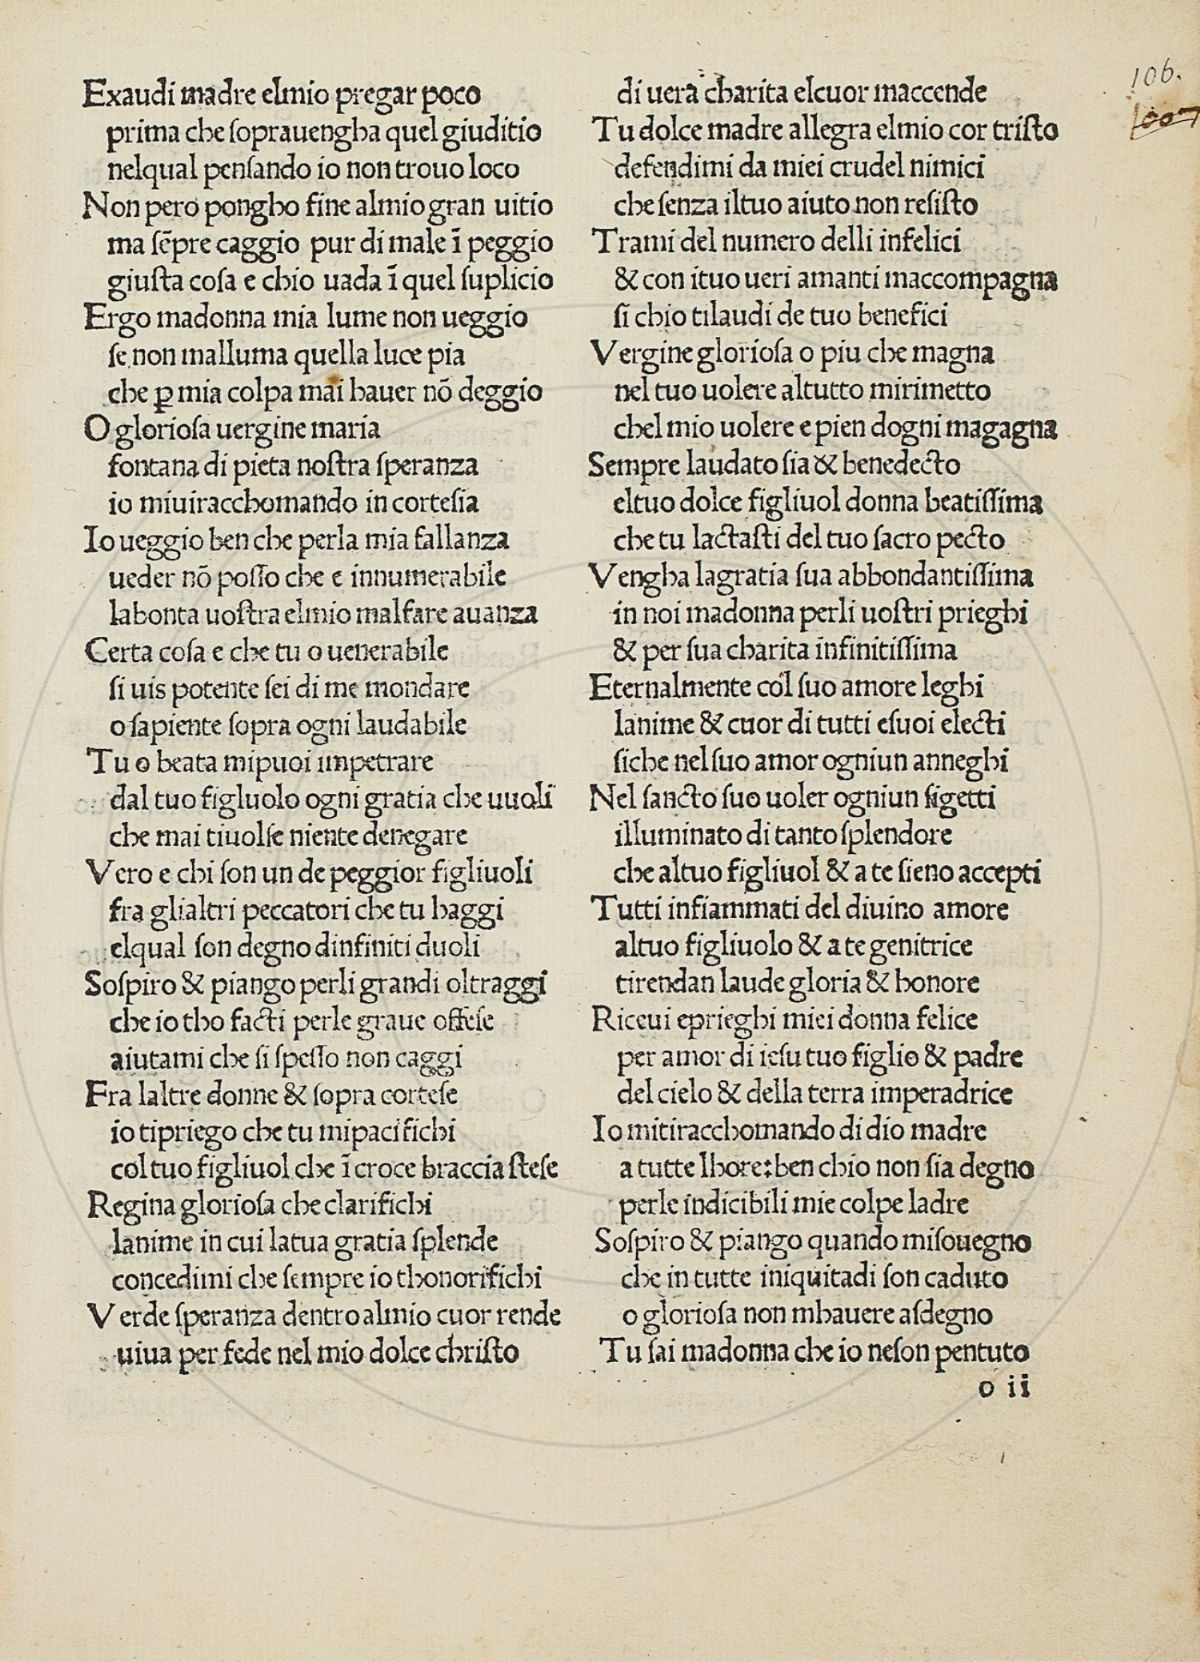 Exaudi madre elmio pregar poco
prima che soprauengha quel giuditio
nelqual pensando io non trouo loco
Non pero pongho fine almio gran uitio
ma sẽpre caggio pur di male ĩ peggio
giusta cosa e chio uada ĩ quel suplicio
Ergo madonna mia lume non ueggio
se non malluma quella luce pia
che ꝑ mia colpa mai hauer nõ deggio
O gloriosa uergine maria
fontana di pieta nostra speranza
io miuiracchomando in cortesia
Io ueggio ben che perla mia fallanza
ueder nõ posso che e innumerabile
labonta uostra elmio malfare auanza
Certa cosa e che tu o uenerabile
si uis potente sei di me mondare
o sapiente sopra ogni laudabile
Tu o beata mipuoi impetrare
dal tuo figluolo ogni gratia che uuoli
che mai tiuolse niente denegare
Vero e chi son un de peggior figliuoli
fra glialtri peccatori che tu haggi
elqual son degno dinfiniti duoli
Sospiro & piango perli grandi oltraggi
che io tho facti perle graue offese
aiutami che si spesso non caggi
Fra laltre donne & sopra cortese
io tipriego che tu mipacifichi
col tuo figliuol che ĩ croce braccia stese
Regina gloriosa che clarifichi
lanime in cui latua gratia splende
concedimi che sempre io thonorifichi
Verde speranza dentro almio cuor rende
uiua per fede nel mio dolce christo
di uera charita elcuor maccende
Tu dolce madre allegra elmio cor tristo
defendimi da miei crudel nimici
che senza iltuo aiuto non resisto
Trami del numero delli infelici
& con ituo ueri amanti maccompagna
si chio tilaudi de tuo benefici
Vergine gloriosa o piu che magna
nel tuo uolere altutto mirimetto
chel mio uolere e pien dogni magagna
Sempre laudato sia & benedecto
eltuo dolce figliuol donna beatissima
che tu lactasti del tuo sacro pecto
Vengha lagratia sua abbondantissima
in noi madonna perli uostri prieghi
& per sua charita infinitissima
Eternalmente col suo amore leghi
lanime & cuor di tutti esuoi electi
siche nel suo amor ogniun anneghi
Nel sancto suo uoler ogniun sigetti
illuminato di tanto splendore
che altuo figliuol & a te sieno accepti
Tutti infiammati del diuino amore
altuo figliuolo & a te genitrice
tirendan laude gloria & honore
Riceui eprieghi miei donna felice
per amor di iesu tuo figlio & padre
del cielo & della terra imperadrice
Io mitiracchomando di dio madre
a tutte lhore: ben chio non sia degno
perle indicibili mie colpe ladre
Sospiro & piango quando misouegno
che in tutte iniquitadi son caduto
o gloriosa non mhauere asdegno
Tu sai madonna che io neson pentuto
o ii
106.